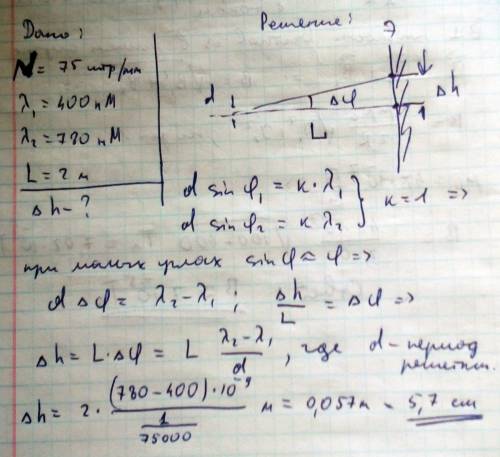 Дано:
Решение:
N = 75 штр/мм
λ₁ = 400 нм
λ₂ = 780 нм
L = 2 м
Δh - ?
d Δφ Δh
L
d sin φ₁ = к · λ₁
d sin φ₂ = к λ₂ } к = 1 =>
при малых углах sin φ ≈ φ =>
d Δφ = λ₂ - λ₁ ; Δh/L = Δφ =>
Δh = L · Δφ = L (λ₂ - λ₁)/d , где d - период
решетки.
Δh = 2 · ((780 - 400) · 10⁻⁹)/(1/75000) м = 0,057м - 5,7 cm